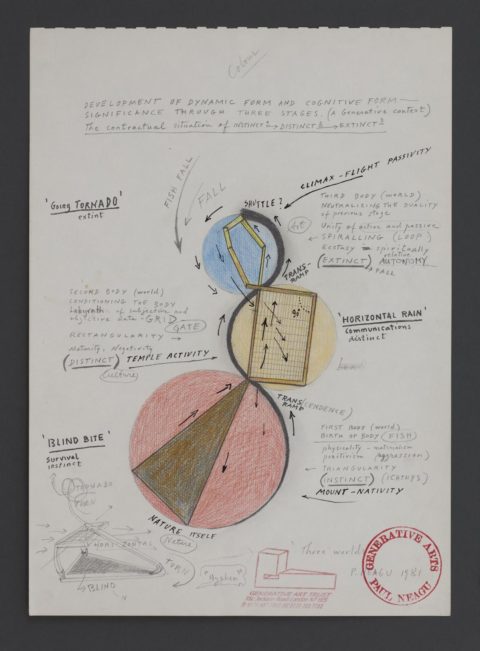 Colour
DEVELOPMENT OF DYNAMIC FORM AND COGNITIVE FORM —
SIGNIFICANCE THROUGH THREE STAGES. (a Generative context)
The contractual situation of INSTINCT → DISTINCT → EXTINCT
FISH FALL
FALL
CLIMAX-FLIGHT PASSIVITY
'Going TORNADO'
extint
SHUTTLE?
Art
THIRD BODY (world)
NEUTRALIZING THE DUALITY
of previous stage
Unity of active and passive
SPIRALLING (LOOP)
Ecstasy = spiritually
relative
(EXTINCT) AUTONOMY
FALL
TRANS-
RAMP
SECOND BODY (world)
CONDITIONING THE BODY
Labyrinth of subjective and
objective data - GRID
GATE
RECTANGULARITY →
Maturity, Negativity
(DISTINCT) TEMPLE ACTIVITY
Culture
'HORIZONTAL RAIN'
communications
distinct
TRANS(CENDENCE)
RAMP
FIRST BODY (world)
BIRTH OF BODY (FISH)
physicality - materialism
positivism (aggression)
TRIANGULARITY
(INSTINCT) (ICHTHYS)
MOUNT-NATIVITY
'BLIND BITE'
Survival
instinct
NATURE ITSELF
Nature
TORNADO
TURN
HORIZONTAL
TURN
BLIND
"Hyphen"
'three worlds'
P. NEAGU 1981
GENERATIVE ART TRUST
GENERATIVE ARTS
PAUL NEAGU